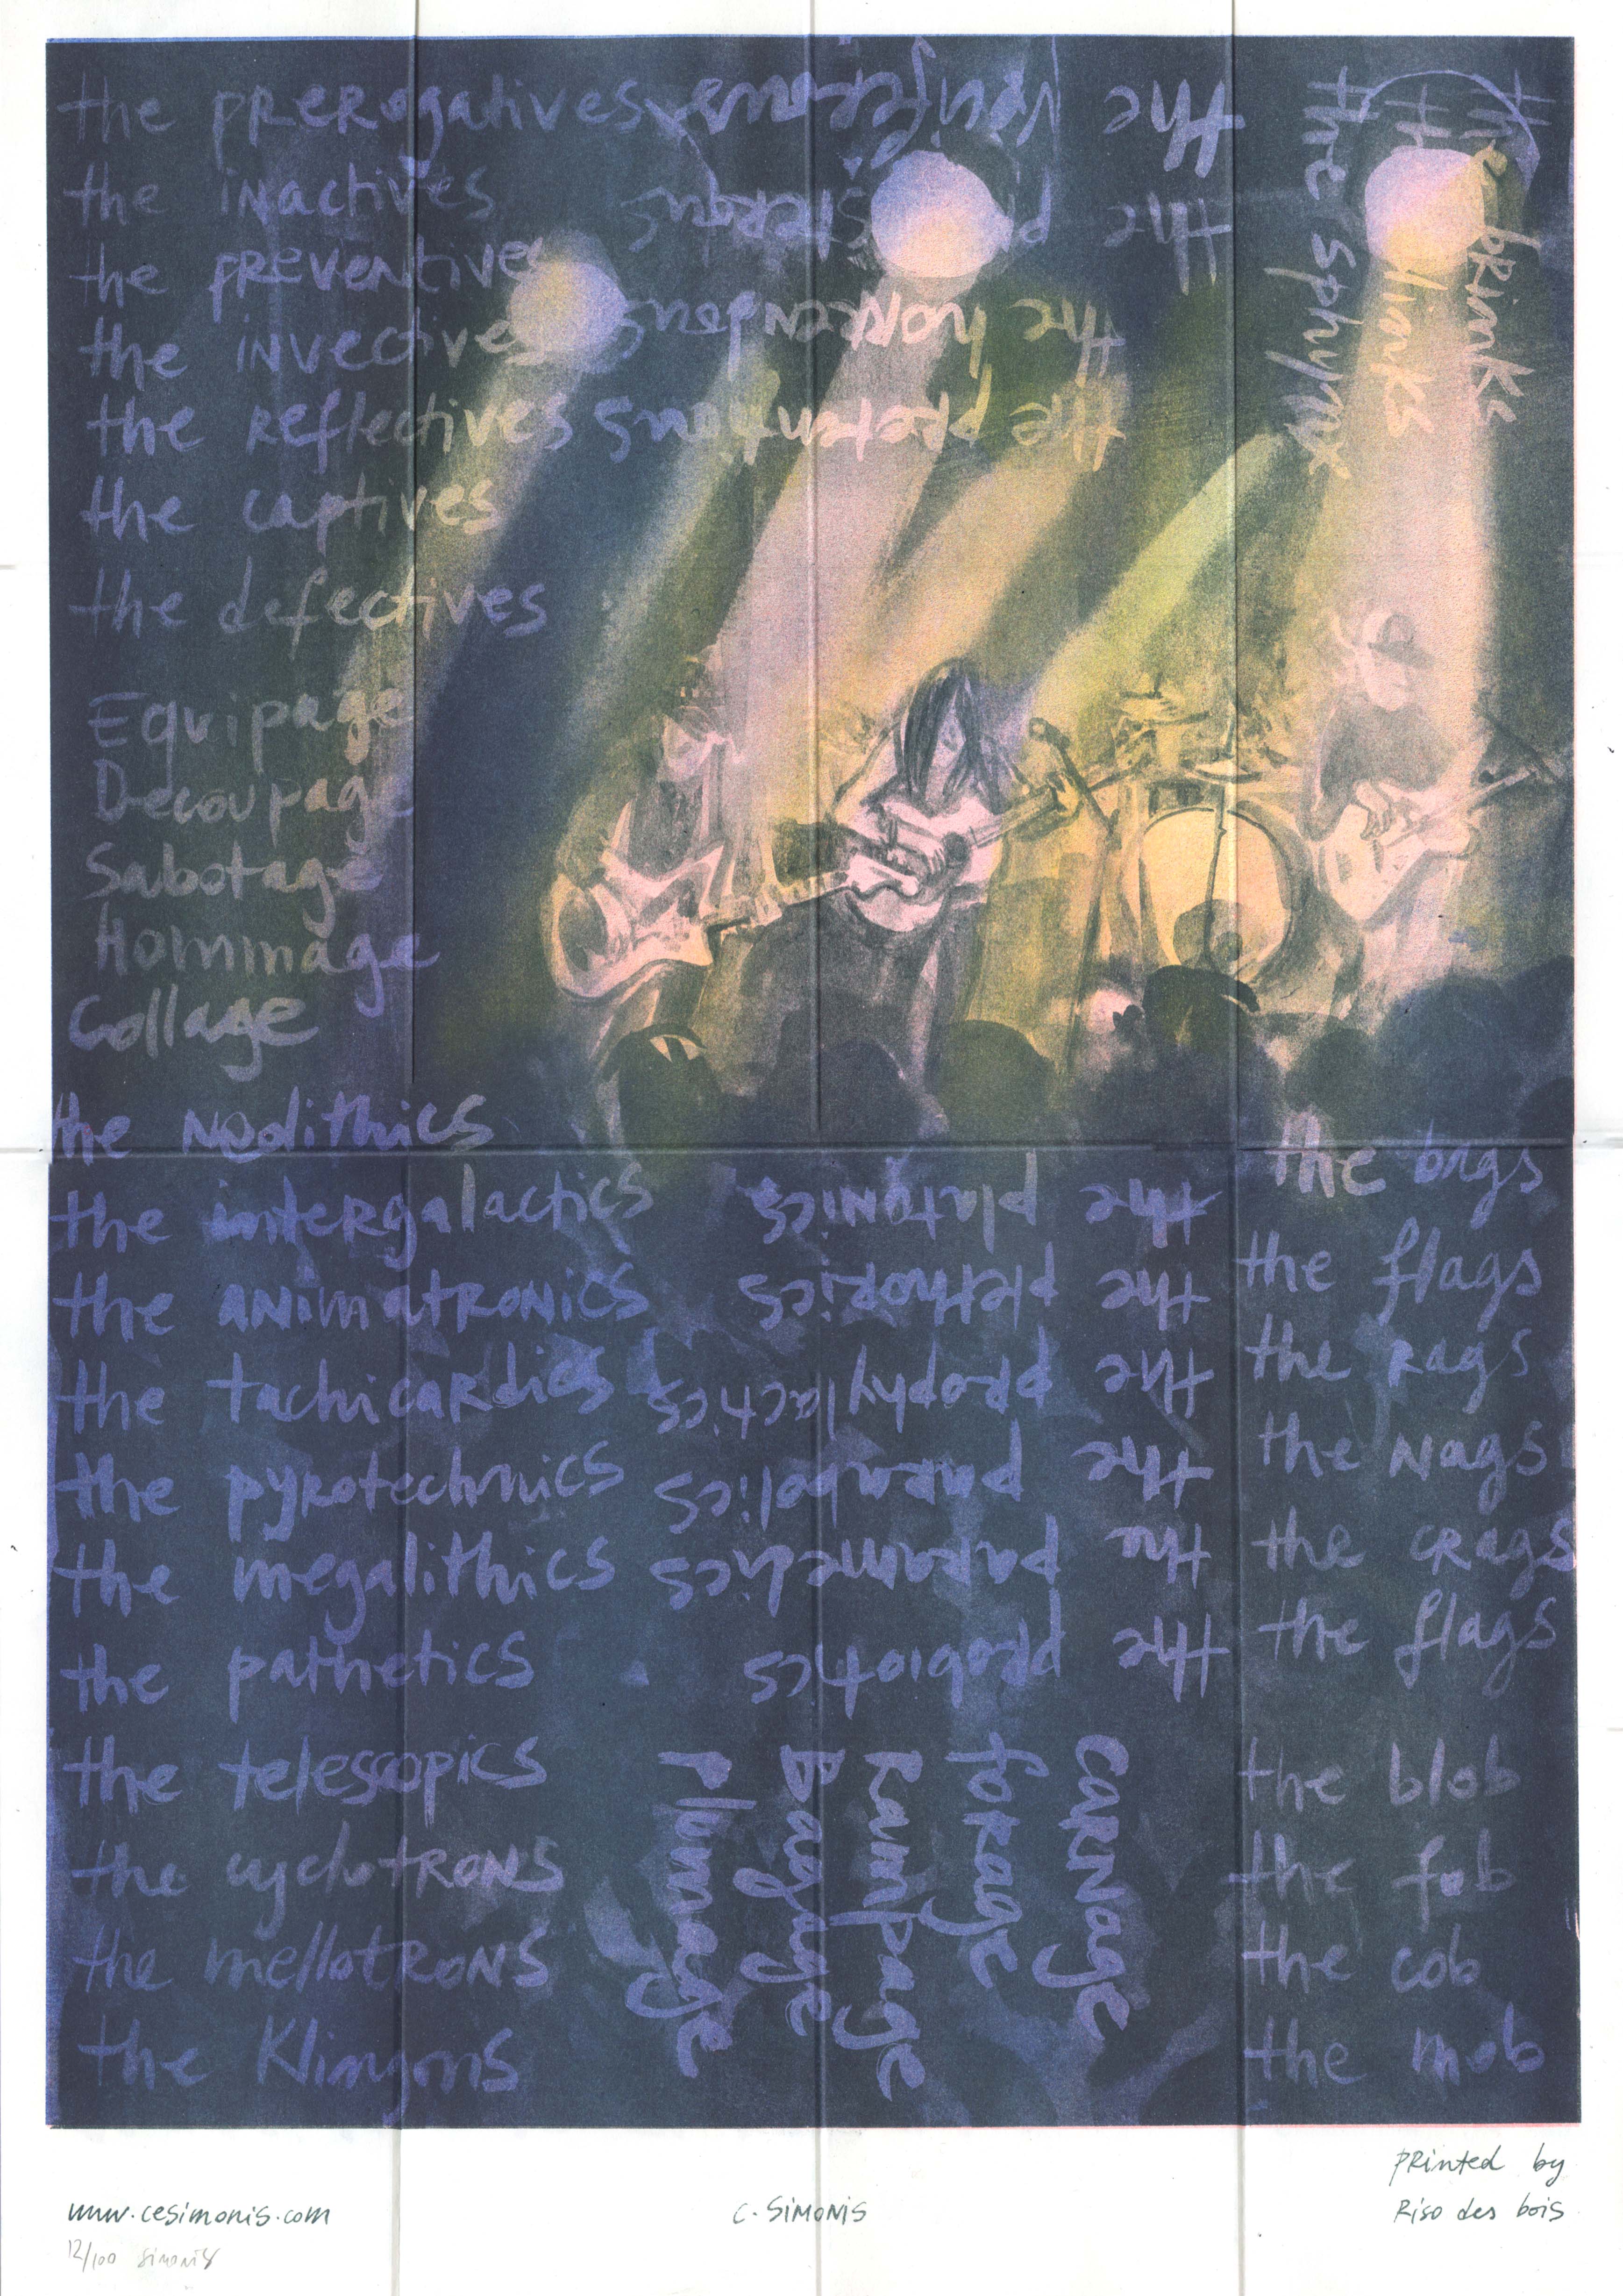 the prerogatives
the inactives
the preventives
the invectives
the reflectives
the captives
the defectives
Equipage
Decoupage
Sabotage
Hommage
Collage
the vociferous
the
the horrendous
the
the sphynx
the links
the brinks
the neolithics
the intergalactics
the animatronics
the tachicardics
the pyrotechnics
the megalithics
the pathetics
the telescopics
the cyclotrons
the mellotrons
the Klingons
the platonics
the plethorics
the prophylactics
the
the
the probiotics
Plumage
Bagage
Rampage
forage
carnage
the bags
the flags
the rags
the nags
the crags
the flags
the blob
the fob
the cob
the mob
www.cesimonis.com
12/100 Simonis
C. SIMONIS
printed by
Riso des bois